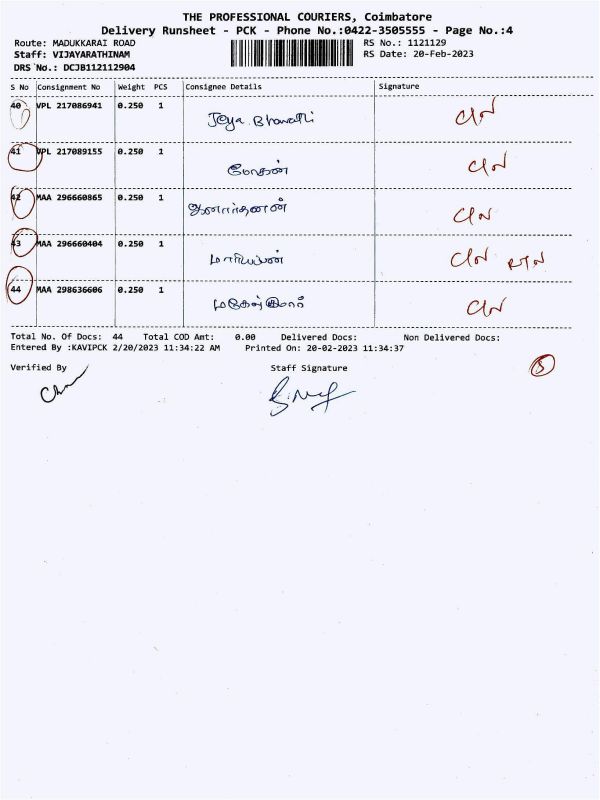 THE PROFESSIONAL COURIERS, Coimbatore
Delivery Runsheet - PCK - Phone No.:0422-3505555 - Page No.:4
Route: MADUKKARAI ROAD RS No.: 1121129
Staff: VIJAYARATHINAM RS Date: 20-Feb-2023
DRS No.: DCJB112112904
S No Consignment No Weight PCS Consignee Details Signature
40 VPL 217086941 0.250 1
Jeya Bharathi
41 VPL 217089155 0.250 1
மோகன்
42 MAA 296660865 0.250 1
ஜனார்தனன்
43 MAA 296660404 0.250 1
மாரியப்பன்
44 MAA 298636606 0.250 1
மகேஸ்குமார்
Total No. Of Docs: 44 Total COD Amt: 0.00 Delivered Docs: Non Delivered Docs:
Entered By :KAVIPCK 2/20/2023 11:34:22 AM Printed On: 20-02-2023 11:34:37
Verified By Staff Signature
5